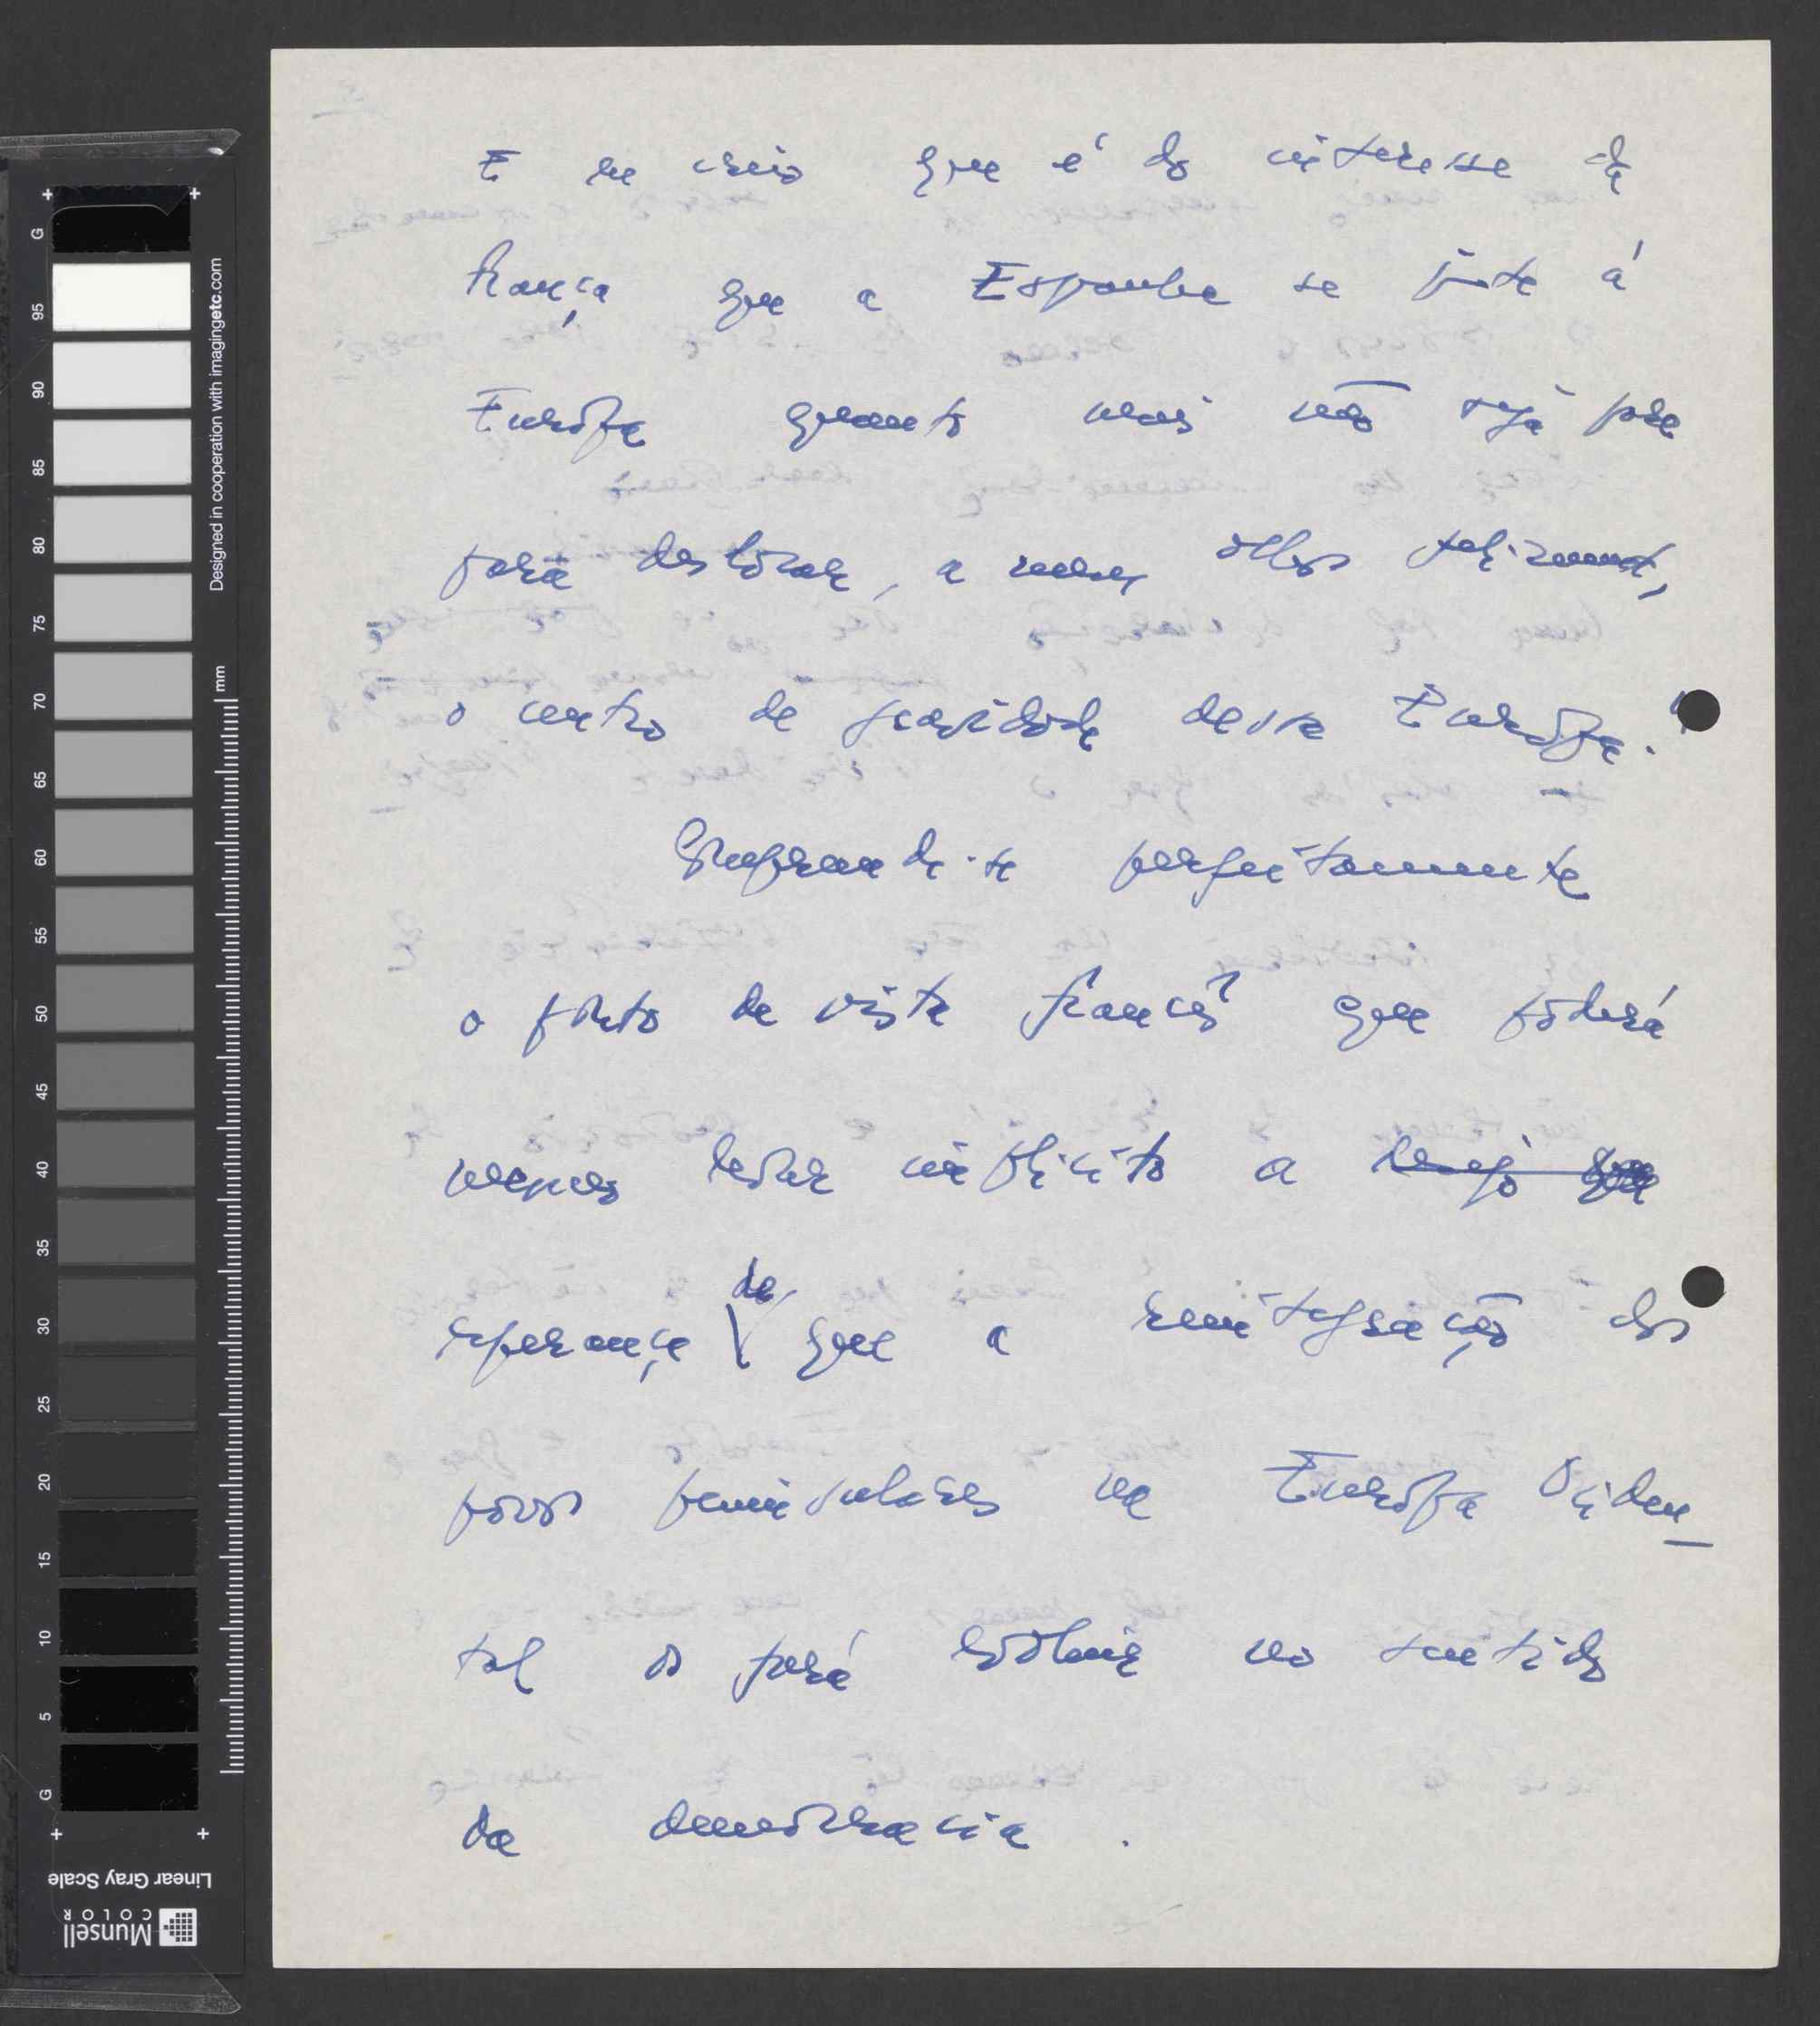 E eu creio que é do interesse da
França que a Espanha se junte à
Europa quanto mais não seja para
para deslocar, a meus olhos felizmente,
o centro de gravidade dessa Europa."
Compreende-se perfeitamente
o ponto de vista francês que poderá
menos levar implícito a desejo que
esperança de que a reintegração dos
povos peninsulares na Europa Ociden-
tal os fará evoluir no sentido
da democracia.
G
95
90
85
80
75
70
65
60
55
50
45
40
35
30
25
20
15
10
5
G
mm
Designed in cooperation with imagingetc.com
Linear Gray Scale
Munsell
COLOR